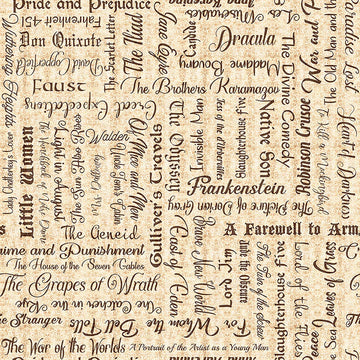 Pride and Prejudice
Fahrenheit 451
Don Quixote
David Copperfield
Wuthering Heights
Faust
Great Expectations
The Scarlet Letter
The Iliad
Jane Eyre
Candide
Les Miserables
Dracula
Madame Bovary
The Brothers Karamazov
The Divine Comedy
War and
The Old Man and the
Paradise Lost
Lady Chatterley's Lover
Little Women
The Hunchback of Notre Dame
Light in August
The Sun Also Rises
Walden
Uncle Tom's Cabin
Of Mice and Men
Gulliver's Travels
The Odyssey
Invisible Man
Slaughterhouse Five
Native Son
Robinson Crusoe
To Kill a Mockingbird
Frankenstein
The Picture of Dorian Gray
The Aeneid
A Farewell to Arm
Crime and Punishment
The House of the Seven Gables
The Grapes of Wrath
The Catcher in the Rye
The Stranger
For Whom the Bell Tolls
East of Eden
Brave New World
Lord Jim
Jude the Obscure
The Turn of the Screw
Lord of the Flies
Leaves of Grass
The War of the Worlds
A Portrait of the Artist as a Young Man